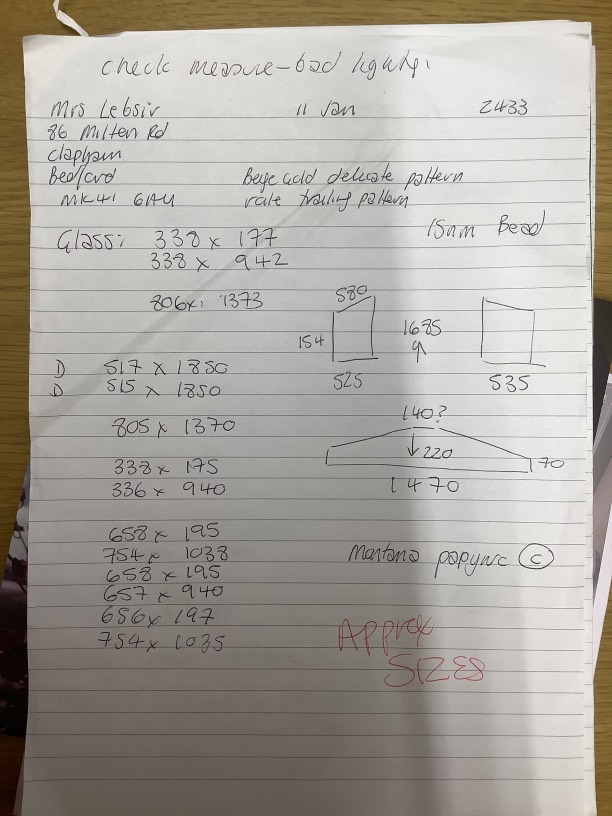 check measure - bad lighting.
Mrs Lebsiv 11 Jan 2433
86 Milton Rd
Clapham
Bedford Beige gold delicate pattern
MK41 6AU trailing pattern
Glass: 338 x 177 15mm Bead
338 x 942
806 x 1373
580
154 1685
525 535
D 517 x 1850
D 515 x 1850
805 x 1370
140?
220 70
1470
338 x 175
336 x 940
658 x 195
754 x 1038
658 x 195
657 x 940
656 x 197
754 x 1035
Montana C
Approx
SIZES